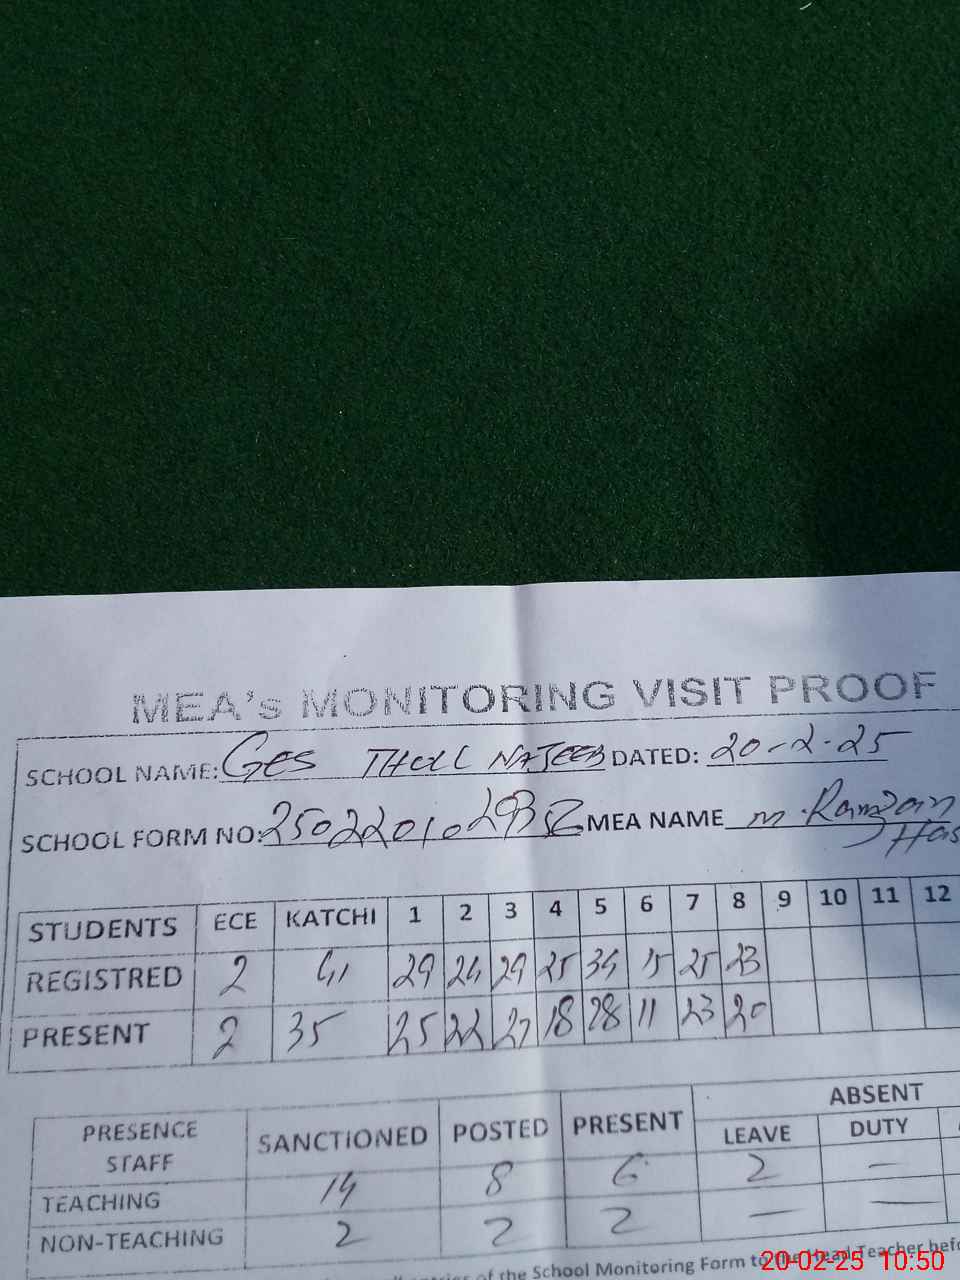 MEA's MONITORING VISIT PROOF
SCHOOL NAME: GES THULL NAJEEB DATED: 20-2-25
SCHOOL FORM NO: MEA NAME M. Ramzan
STUDENTS ECE KATCHI 1 2 3 4 5 6 7 8 9 10 11 12
REGISTRED 2 41 29 24 29 25 34 15 25 23
PRESENT 2 35 25 22 27 18 28 11 23 20
ABSENT
PRESENCE STAFF SANCTIONED POSTED PRESENT LEAVE DUTY
TEACHING 14 8 6 2 —
NON-TEACHING 2 2 2 — —
of the School Monitoring Form to the Head Teacher
20-02-25 10:50